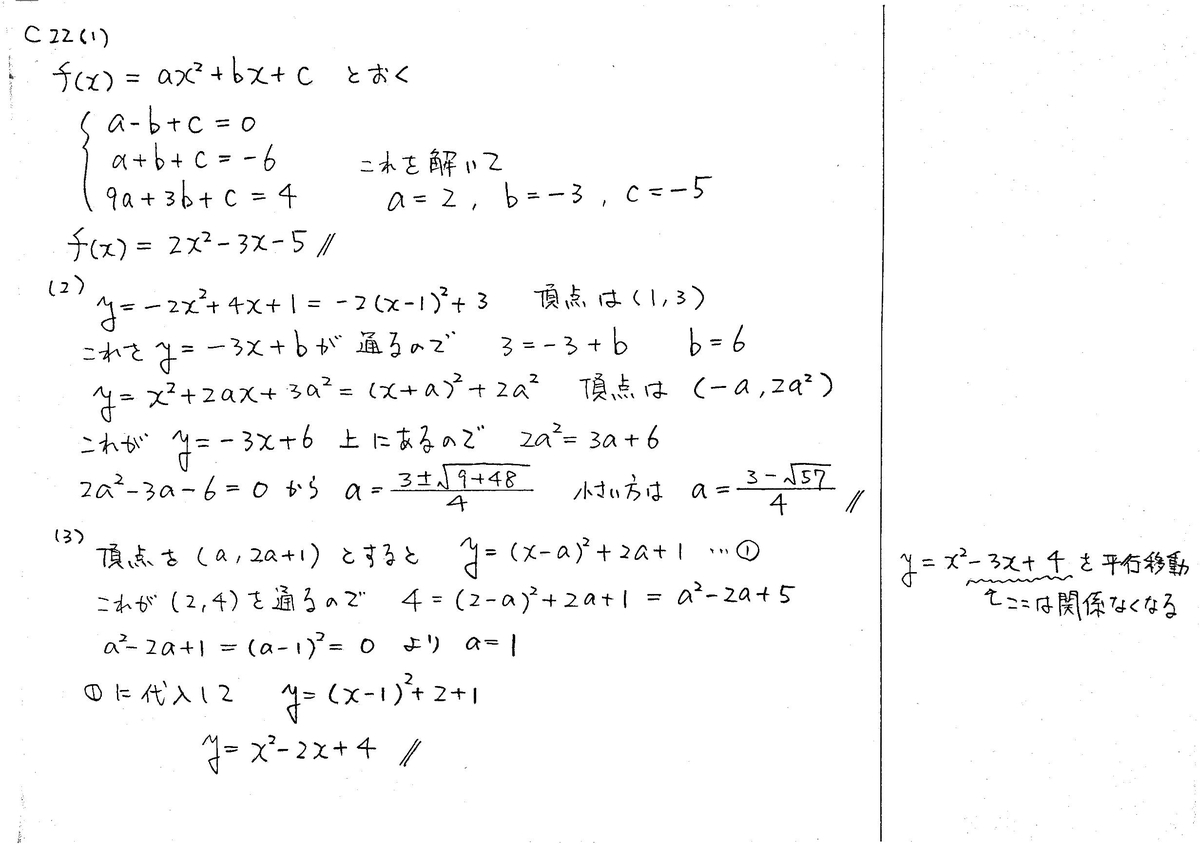 C 22 (1)
f(x) = ax² + bx + c とおく
a - b + c = 0
a + b + c = -6 これを解いて
9a + 3b + c = 4 a = 2 , b = -3 , c = -5
f(x) = 2x² - 3x - 5 //
(2)
y = -2x² + 4x + 1 = -2(x-1)² + 3 頂点は (1, 3)
これを y = -3x + b が 通るので 3 = -3 + b b = 6
y = x² + 2ax + 3a² = (x+a)² + 2a² 頂点は (-a, 2a²)
これが y = -3x + 6 上にあるので 2a² = 3a + 6
2a² - 3a - 6 = 0 から a = (3 ± √(9+48))/4 小さい方は a = (3 - √57)/4 //
(3)
頂点を (a, 2a+1) とすると y = (x-a)² + 2a + 1 … ①
これが (2, 4) を通るので 4 = (2-a)² + 2a + 1 = a² - 2a + 5
a² - 2a + 1 = (a-1)² = 0 より a = 1
①に代入して y = (x-1)² + 2 + 1
y = x² - 2x + 4 //
y = x² - 3x + 4 を平行移動
ここは関係なくなる